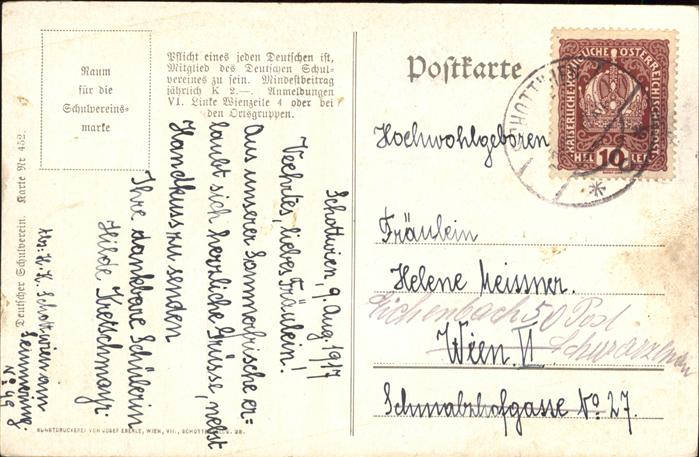 Raum
für die
Schulvereins-
marke
Pflicht eines jeden Deutschen ist,
Mitglied des Deutschen Schul-
vereines zu sein. Mindestbeitrag
jährlich K 2.—. Anmeldungen
VI. Linke Wienzeile 4 oder bei
den Ortsgruppen.
Deutscher Schulverein. Karte Nr 452.
Schottwien, 9. Aug. 1917
Veehrtes, liebes Fräulein!
Aus unserer Sommerfrische er-
laubt sich herzliche Grüsse, nebst
Handkuss zu senden
Ihre dankbare Schülerin
Hilde Kretschmayr.
Schottwien am
Semmering
No 49
KUNSTDRUCKEREI VON JOSEF EBERLE, WIEN, VII., SCHOTT
Postkarte
KAISERLICHE KÖNIGLICHE ÖSTERREICHISCHE POST
HELLER 10 HELLER
SCHOTTWIEN
Hochwohlgeboren
Fräulein
Helene Meissner.
Eichenbach 50 Post
Schwarzenau
Wien. VI
Schmalzhofgasse No. 27.